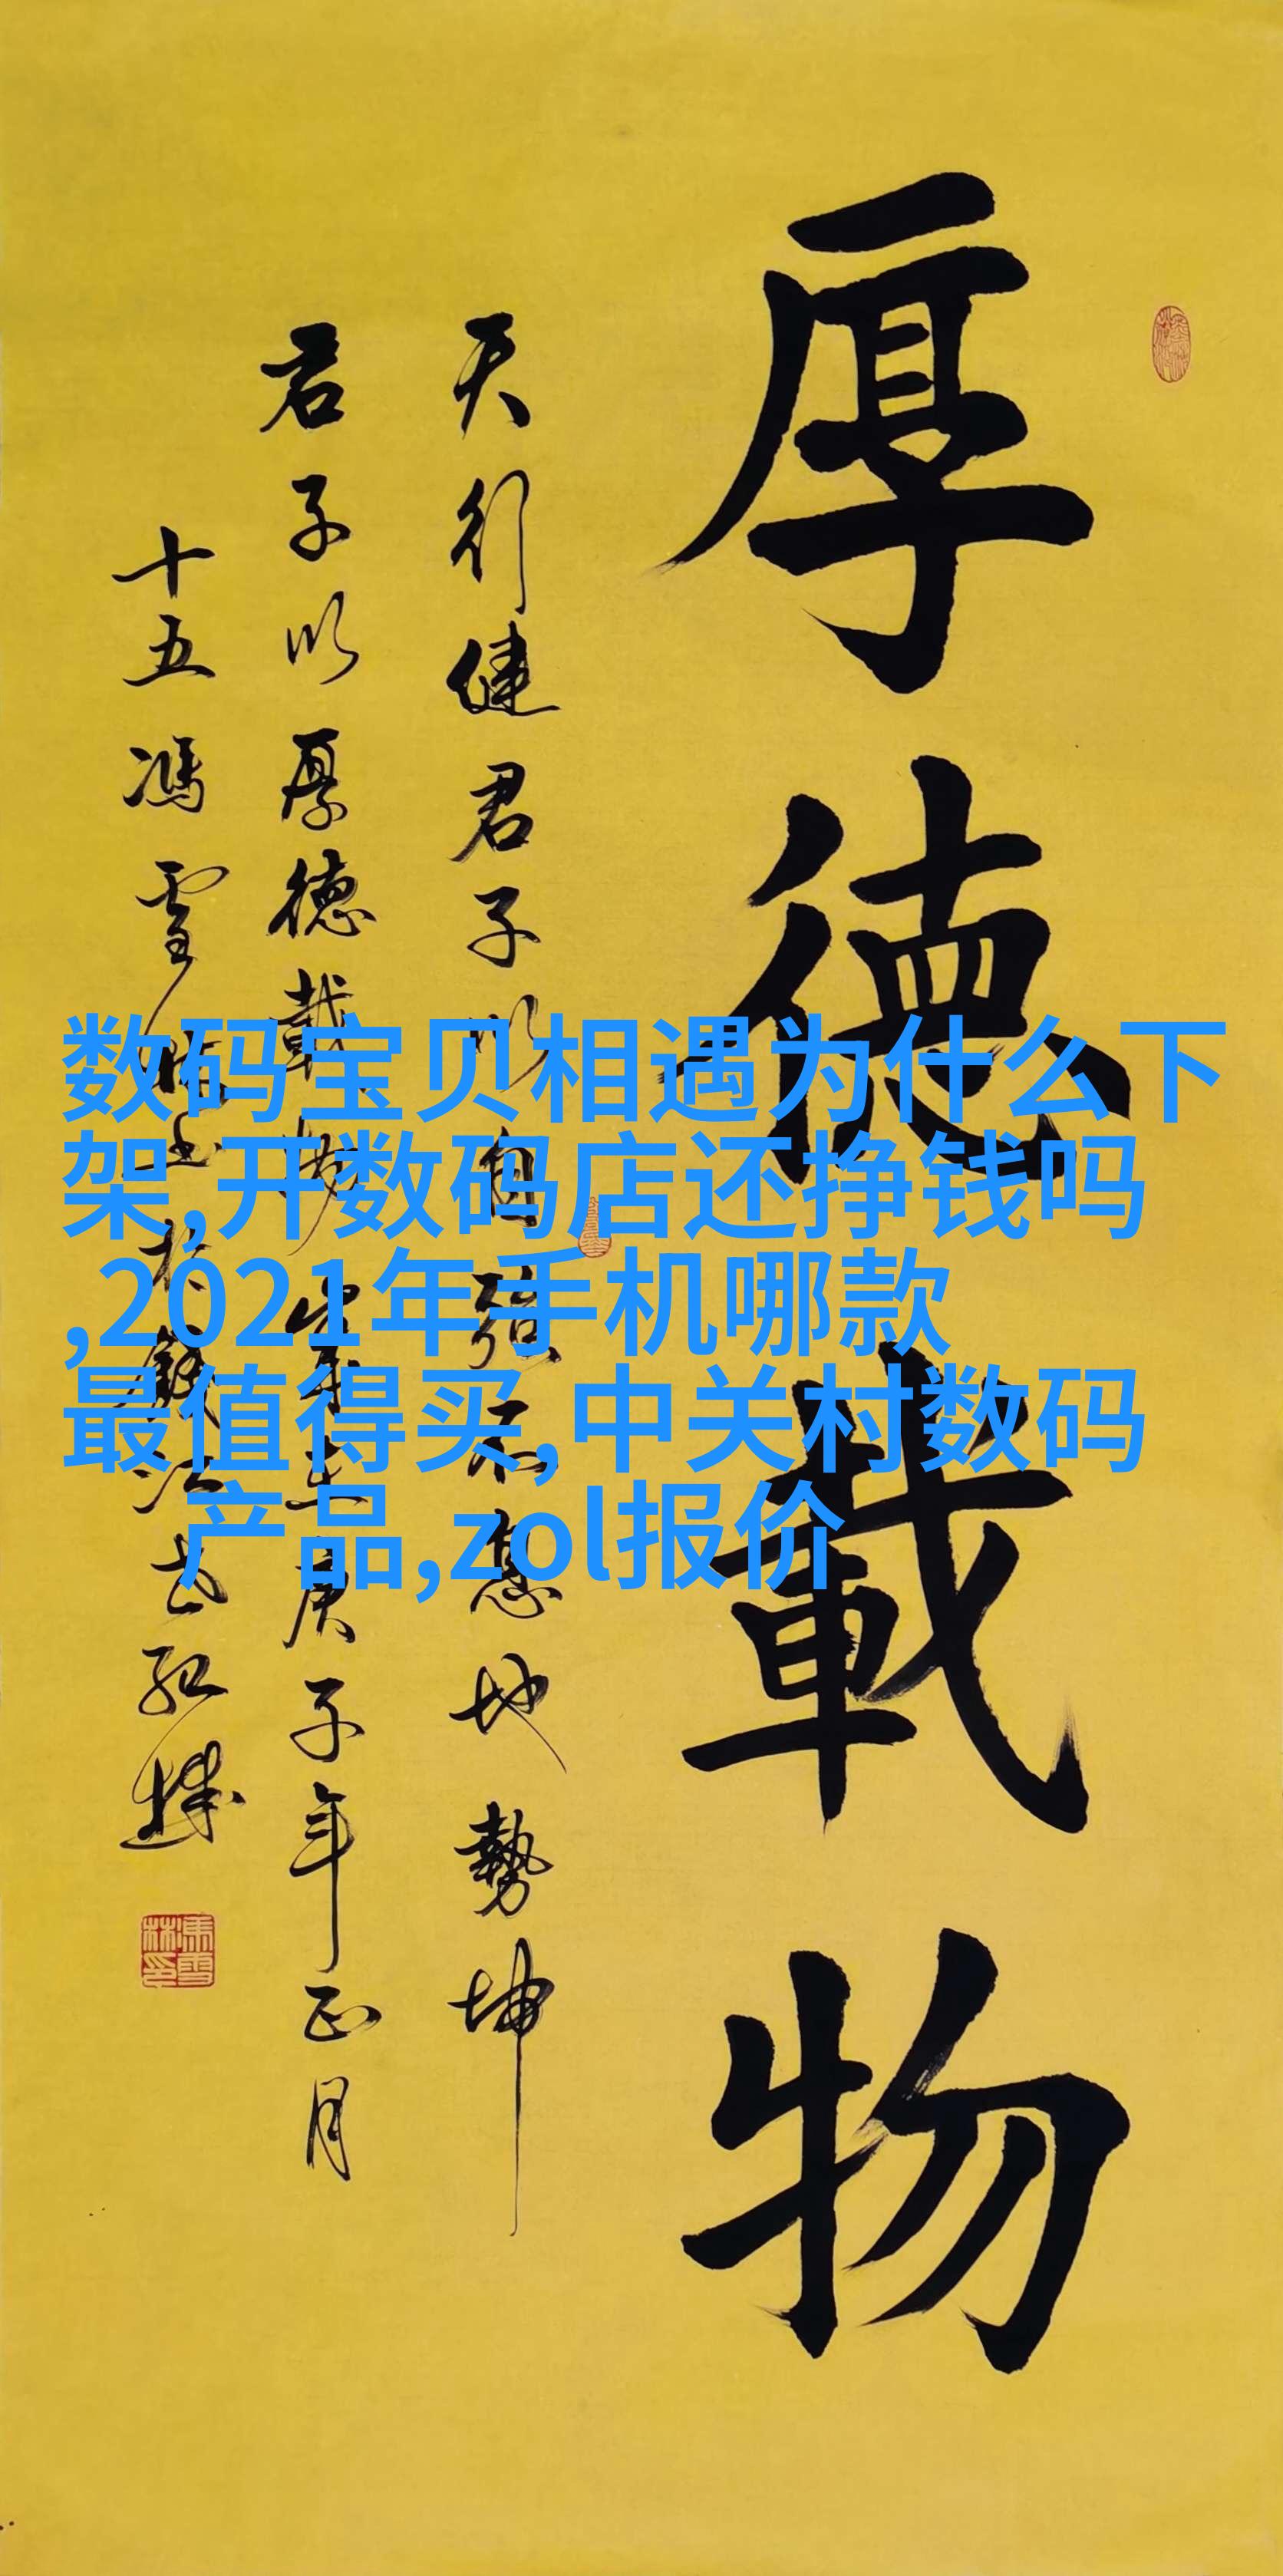 厚德載物
天行健君子以自强不息地勢坤
君子以厚德載物歲在庚子年正月
十五馮雪林書於錢江世紀城
馮雪林印
数码宝贝相遇为什么下
架,开数码店还挣钱吗
,2021年手机哪款
最值得买,中关村数码
产品,zol报价